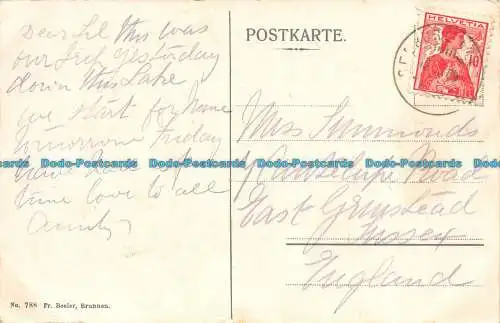 POSTKARTE.
HELVETIA
10
Dear Lil this was
our trip yesterday
down this Lake
we start for home
tomorrow Friday
have had a
time love to all
Miss Simmonds
Cantelupe Road
East Grinstead
Sussex
England
No. 788 Fr. Beeler, Brunnen.
Dodo-Postcards Dodo-Postcards Dodo-Postcards Dodo-Postcards Dodo-Postcards